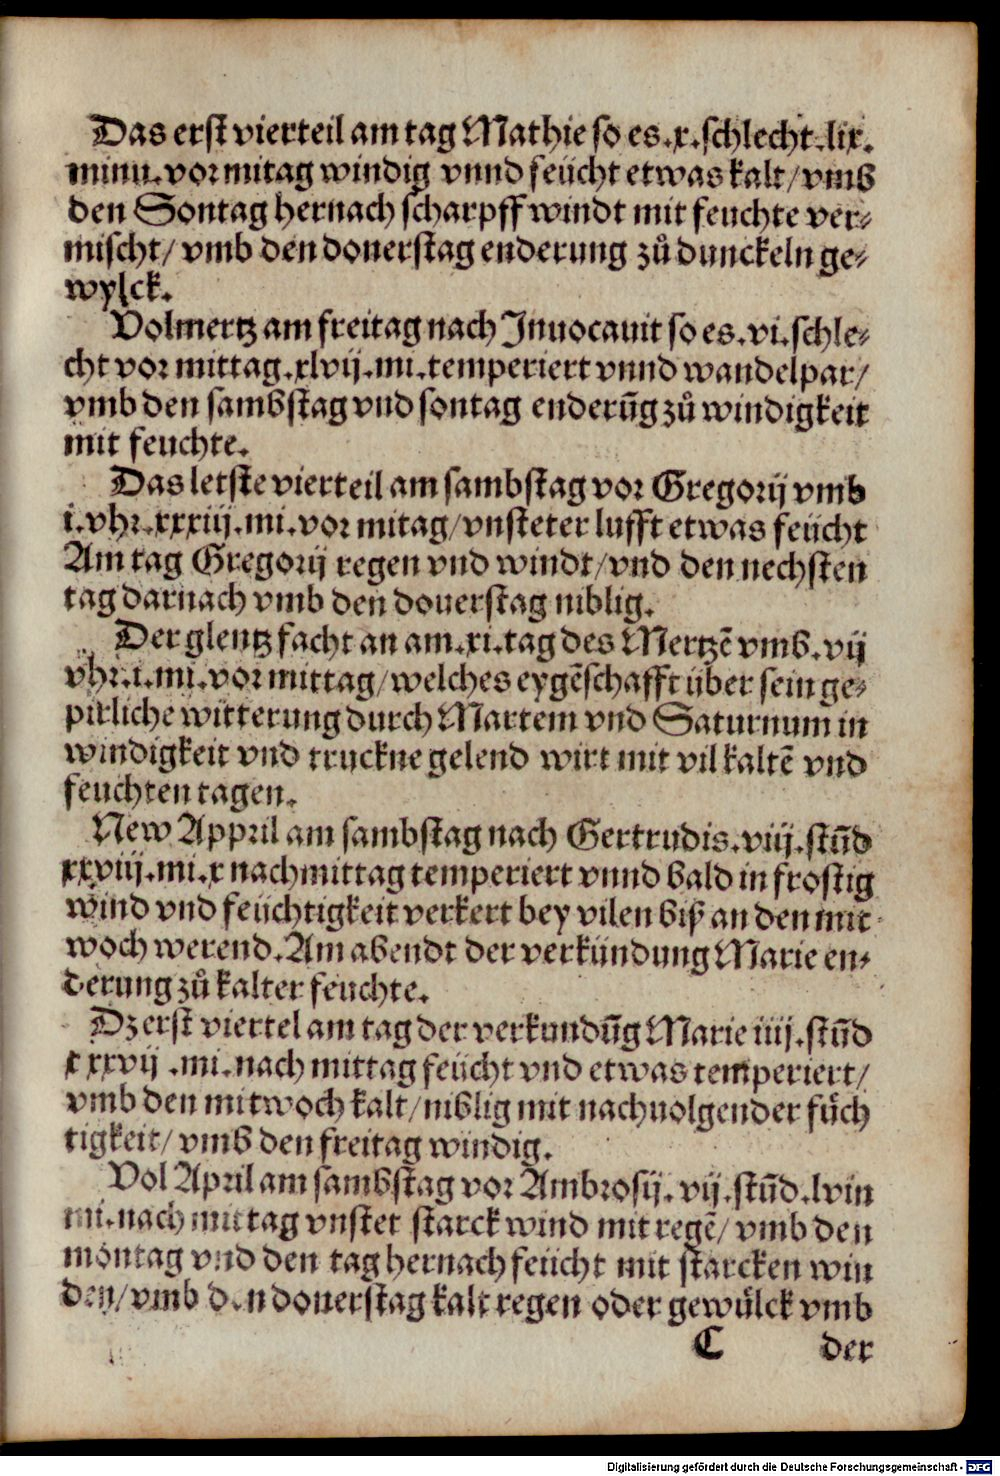 Das erst vierteil am tag Mathie so es .x. schlecht .lix.
minu. vor mitag windig vnnd feücht etwas kalt/ vmb
den Sontag hernach scharpff windt mit feuchte ver⸗
mischt/ vmb den donerstag enderung zů dunckeln ge⸗
wylck.
Volmertz am freitag nach Inuocauit so es .vi. schle⸗
cht vor mittag .xlvij. mi. temperiert vnnd wandelpar/
vmb den sambstag vnd sontag enderūg zů windigkeit
mit feuchte.
Das letste vierteil am sambstag vor Gregorij vmb
i. vhr .xxxiij. mi. vor mitag/ vnsteter lufft etwas feücht
Am tag Gregorij regen vnd windt/ vnd den nechsten
tag darnach vmb den donerstag niblig.
Der glentz facht an am .xi. tag des Mertzē vmb .vij
vhr .i. mi. vor mittag/ welches eygēschafft über sein ge⸗
pürliche witterung durch Martem vnd Saturnum in
windigkeit vnd truckne gelend wirt mit vil kaltē vnd
feuchten tagen.
New Appril am sambstag nach Gertrudis .viij. stūd
xxviij. mi. x nachmittag temperiert vnnd bald in frostig
wind vnd feüchtigkeit verkert bey vilen biß an den mit
woch werend. Am abendt der verkündung Marie en⸗
derung zů kalter feuchte.
Dz erst viertel am tag der verkundūg Marie iiij. stūd
xxxvij .mi. nach mittag feücht vnd etwas temperiert/
vmb den mitwoch kalt/ niblig mit nachuolgender füch
tigkeit/ vmb den freitag windig.
Vol April am sambstag vor Ambrosij. vij .stūd. lviii
mi. nach mittag vnstet starck wind mit regē/ vmb den
montag vnd den tag hernach feücht mit starcken win
den/ vmb den donerstag kalt regen oder gewülck vmb
C der
Digitalisierung gefördert durch die Deutsche Forschungsgemeinschaft - DFG